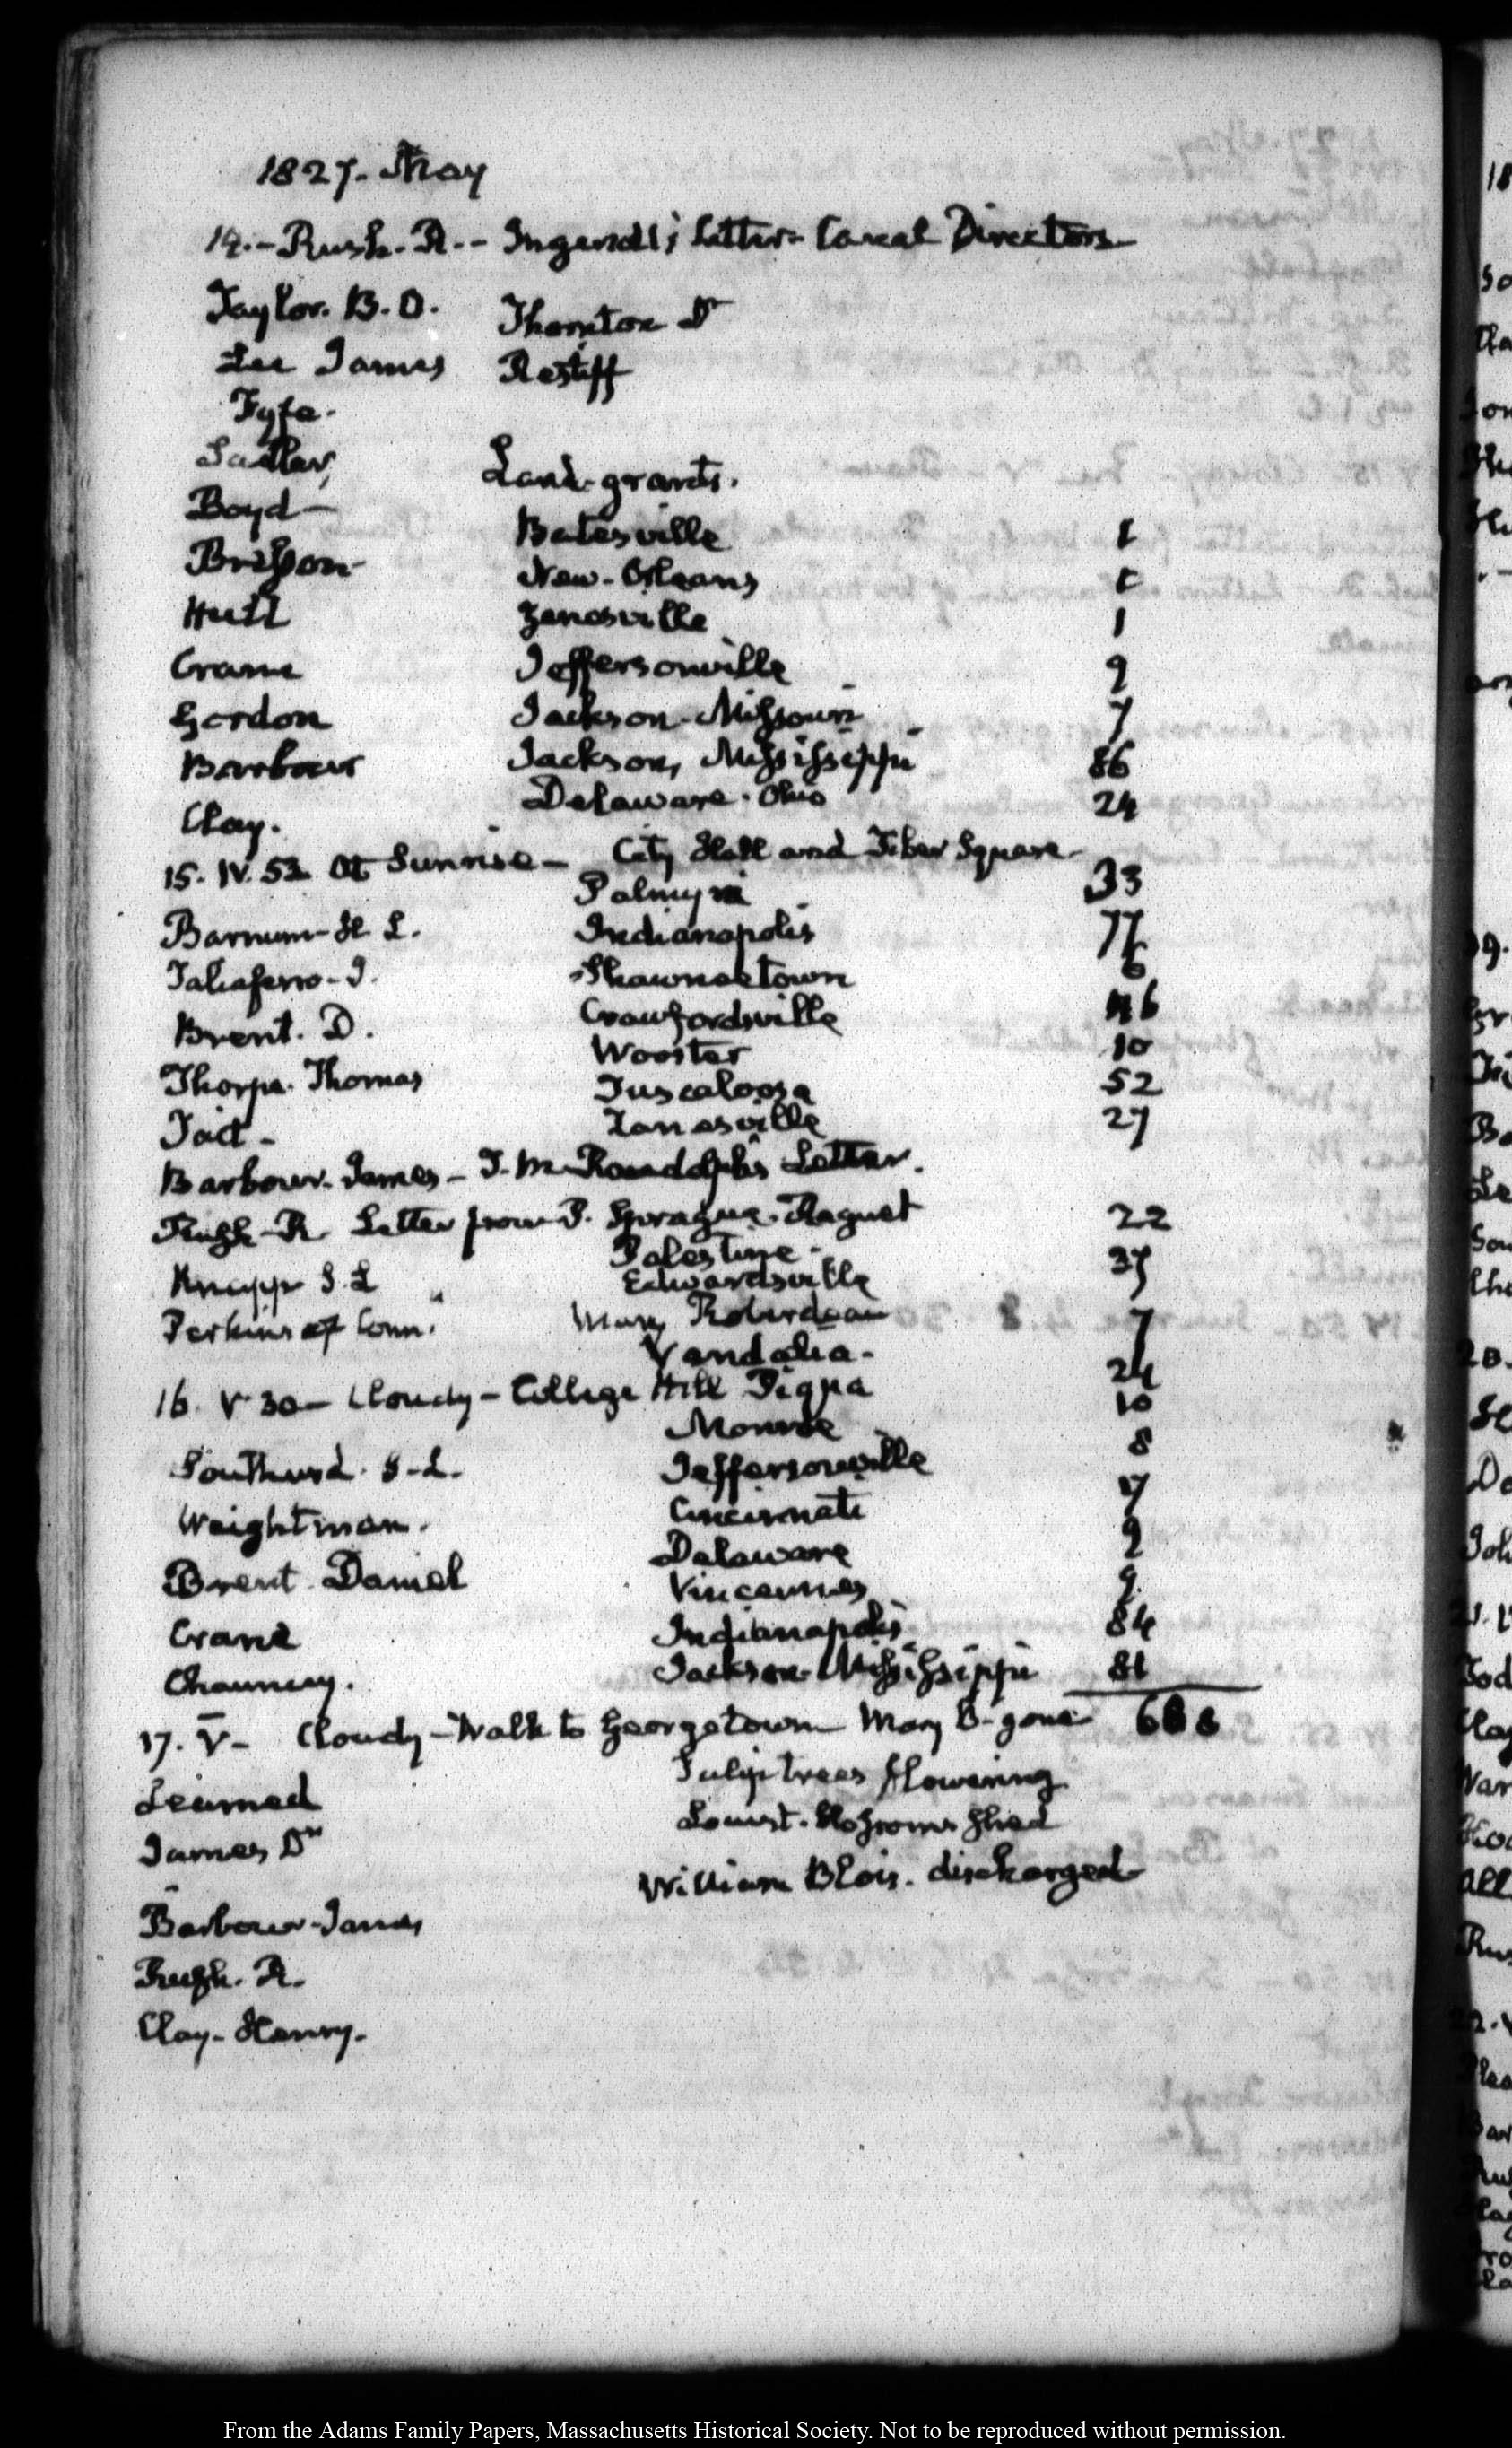 1827. May
14.- Rush. R.- Ingersoll's Letter- Canal Directors
Taylor. B. O. Thornton Dr
Lee James Restiff
Fyfe.
Sadler, Land-grants.
Boyd-
Batesville 1
Brisson
New-Orleans 1
Hull Zanesville 1
Crane Jeffersonville 9
Gordon Jackson-Missouri 7
Barbour Jackson, Mississippi 86
Delaware. Ohio 24
Clay.
15. IV. 52 At Sunrise- City Hall and Tiber Square
Palmyra 33
Barnum-H L. Indianapolis 77
Taliaferro-J. Shawneetown 6
Brent. D. Crawfordsville 46
Wooster 10
Thorpe. Thomas Tuscaloosa 52
Tait- Zanesville 27
Barbour. James- T. M. Randolph's Letter.
Rush-R. Letter from P. Sprague. Raguet 22
Palestine-
Knapp S. L Edwardsville 37
Perkins of Conn. Mary Roberdeau
Vandalia- 7
16. V 30- Cloudy- College Hill Piqua 24
Monroe 10
Southard. S-L. Jeffersonville 8
Weightman. Cincinnati 17
Delaware 9
Brent. Daniel Vincennes 9
Crane Indianapolis 84
Chauncey. Jackson-Mississippi 81
17. V- Cloudy-Walk to Georgetown Mary B-gone 688
Tulip trees flowering
Learned
Locust. blossoms shed
James Dr
William Blois. discharged
Barbour-James
Rush. R.
Clay-Henry.
From the Adams Family Papers, Massachusetts Historical Society. Not to be reproduced without permission.